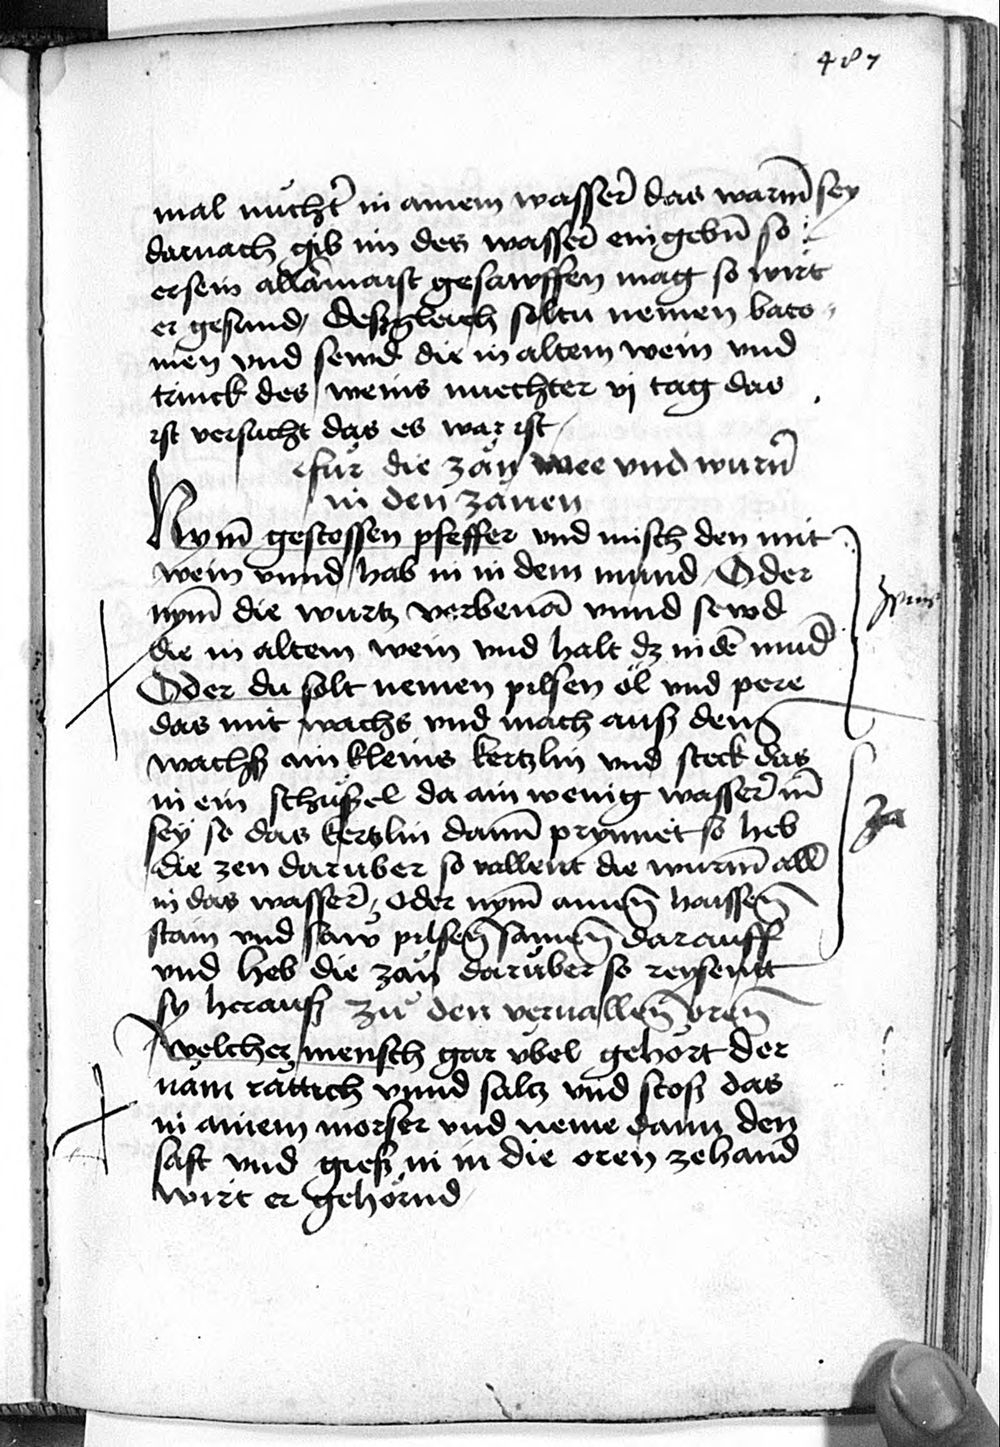 487
mal nuͦchter in ainem wasser das warm̄ sey
darnach gib im des wasser eingebn̄ so
er sein allāmaist gesawffen mag so wirt
er gesund / Deszgleich soltu nemen
men vnd sewd die in altem wein vnd
trinck des weins nuechter vj tag das
ist versucht das es war ist /
fuͤr die zaͤn wee vnd wurm̄
in den zänen
Nym̄ gestossen pfeffer vnd misch den mit
wein vnnd hab in in dem mund / Oder
nym̄ die wurtz verbenā vnnd sewd
die in altem wein vnd halt dz in dē mūd
Oder du solt nemen pilsen öl vnd pere
das mit wachs vnd mach ausz dem̄
wachsz ain kleins kertzlin vnd steck das
in ein schuͤszel da ain wenig wasser in̄
sey so das kertzlin dann̄ prynnet so heb
die zen daruber so vallent die wurm̄ all
in das wasser / oder nym̄ ainen̄ haissen̄
stain vnd saw pilsen̄ samen̄ darauff
vnd heb die zaͤn daruͤber so reysennt
sy herausz Zuͦ den veruallen̄ oren̄
Welcher mensch gar vbel gehoͤrt der
näm rättich vnnd saltz vnd stosz das
in ainem morser vnd neme dann den
saft vnd giesz in in die oren zehand
wirt er gehörnd